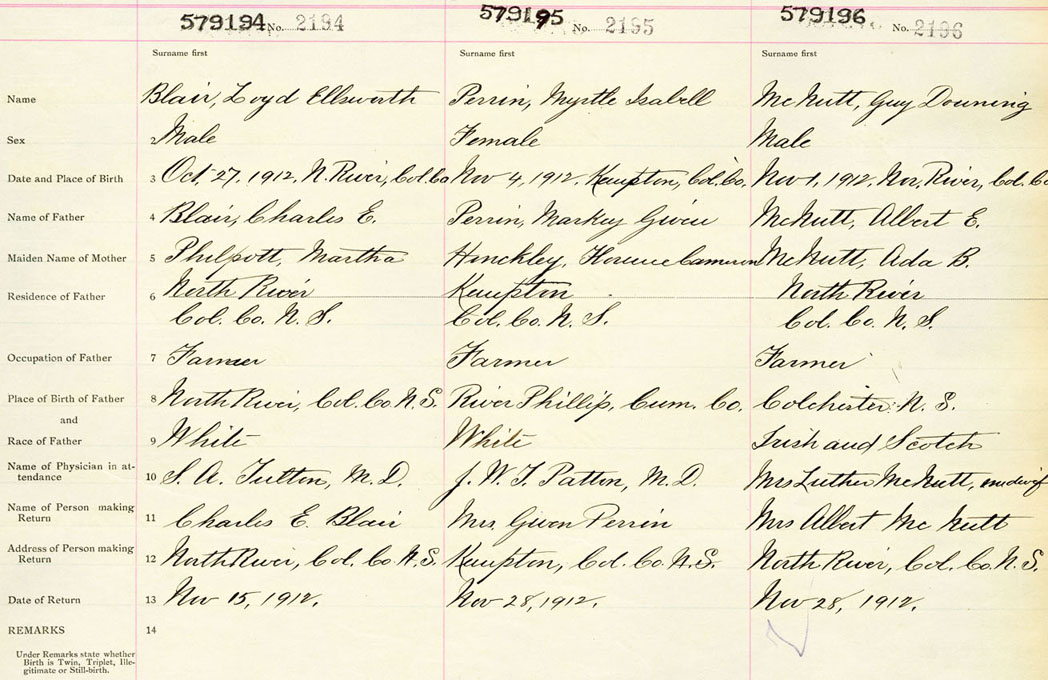 579194 No. 2194
579195 No. 2195
579196 No. 2196
Surname first Surname first Surname first
Name Blair, Loyd Ellsworth Perrin, Myrtle Isabell McNutt, Guy Douning
Sex 2 Male Female Male
Date and Place of Birth 3 Oct. 27, 1912, N. River, Col. Co Nov 4, 1912, Kempton, Col. Co. Nov 1, 1912, Nor. River, Col. Co
Name of Father 4 Blair, Charles E. Perrin, Markey Given McNutt, Albert E.
Maiden Name of Mother 5 Philpott, Martha Hinckley, Florence Cameron McNutt, Ada B.
Residence of Father 6 North River Kempton North River
Col. Co. N. S. Col. Co. N. S. Col. Co. N. S.
Occupation of Father 7 Farmer Farmer Farmer
Place of Birth of Father 8 North River, Col. Co. N. S. River Phillip, Cum. Co. Colchester N. S.
and
Race of Father 9 White White Irish and Scotch
Name of Physician in at-
tendance 10 S. A. Fulton, M. D. J. W. T. Patton, M. D. Mrs Luther McNutt, midwif
Name of Person making
Return 11 Charles E. Blair Mrs. Given Perrin Mrs Albert Mc Nutt
Address of Person making
Return 12 North River, Col. Co. N. S. Kempton, Col. Co. N. S. North River, Col. Co. N. S.
Date of Return 13 Nov 15, 1912. Nov 28, 1912. Nov 28, 1912.
REMARKS 14
Under Remarks state whether
Birth is Twin, Triplet, Ille-
gitimate or Still-birth.